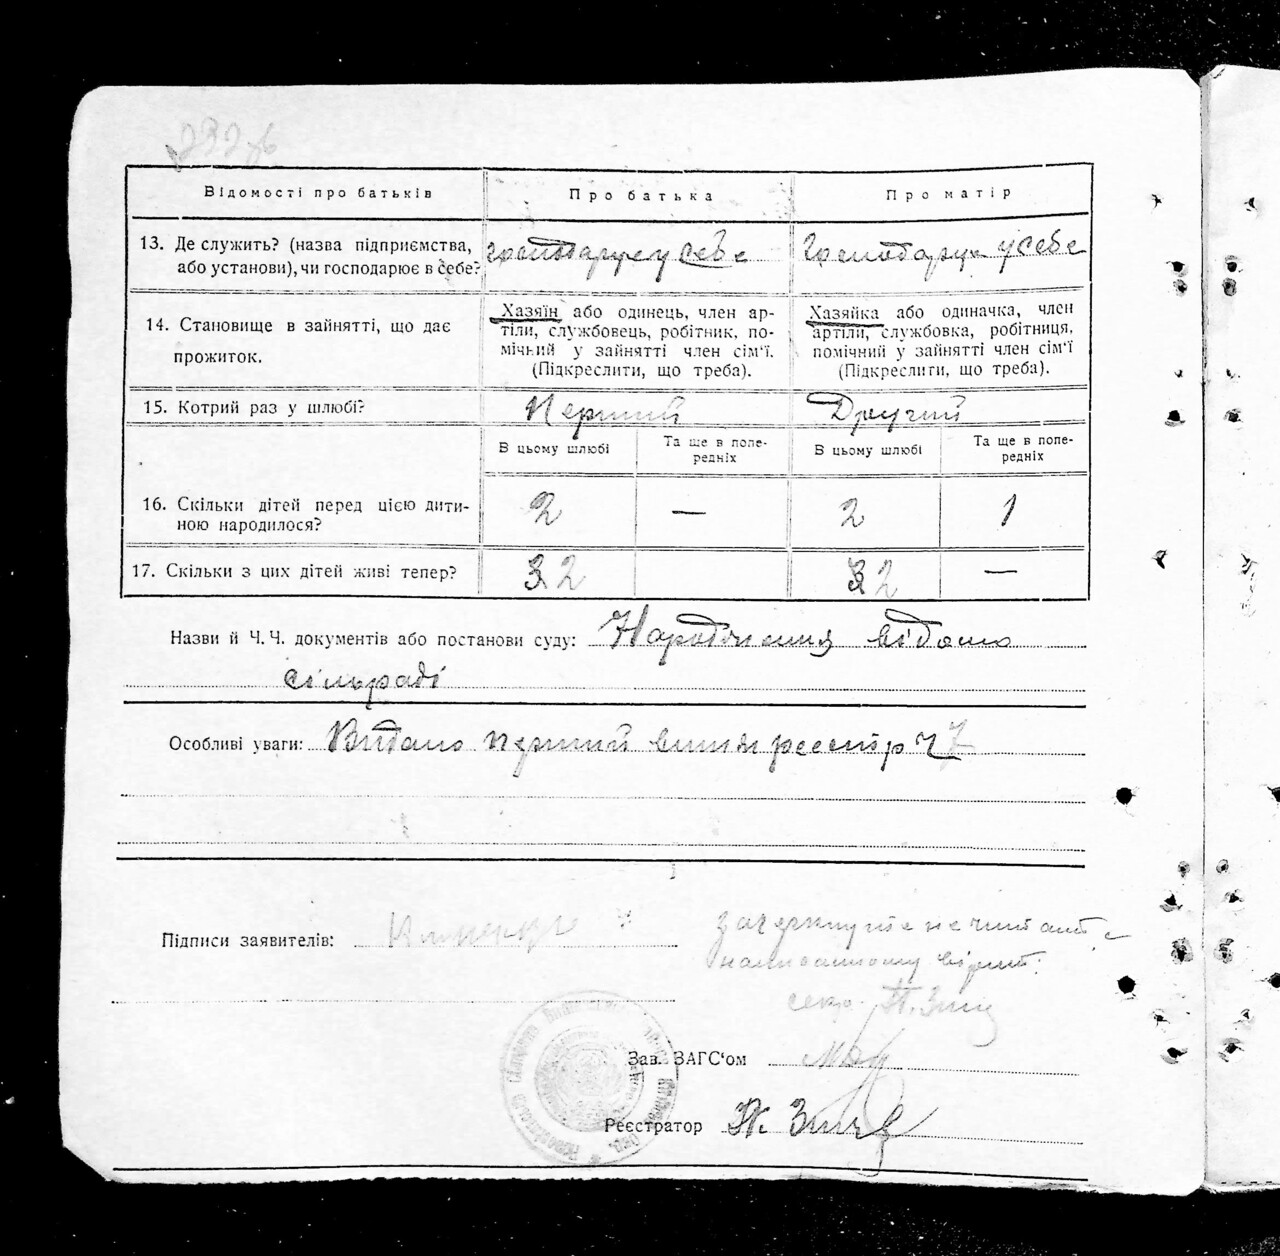 Відомості про батьків
Про батька
Про матір
13. Де служить? (назва підприємства,
або установи), чи господарює в себе?
господарує у себе
господарує у себе
14. Становище в зайнятті, що дає
прожиток.
Хазяїн або одинець, член ар-
тіли, службовець, робітник, по-
мічний у зайнятті член сім'ї.
(Підкреслити, що треба).
Хазяйка або одиначка, член
артіли, службовка, робітниця,
помічний у зайнятті член сім'ї
(Підкреслити, що треба).
15. Котрий раз у шлюбі?
Перший
Другий
В цьому шлюбі
Та ще в попе-
редніх
В цьому шлюбі
Та ще в попе-
редніх
16. Скільки дітей перед цією дити-
ною народилося?
2
—
2
1
17. Скільки з цих дітей живі тепер?
3 2
3 2
—
Назви й Ч.Ч. документів або постанови суду: Народження відомо
сільраді
Особливі уваги: Видано перший випис реєстр Ч 7
Підписи заявителів:
зачеркнуте не читать
написанному вірить:
секр.
Зав. ЗАГС'ом
Реєстратор